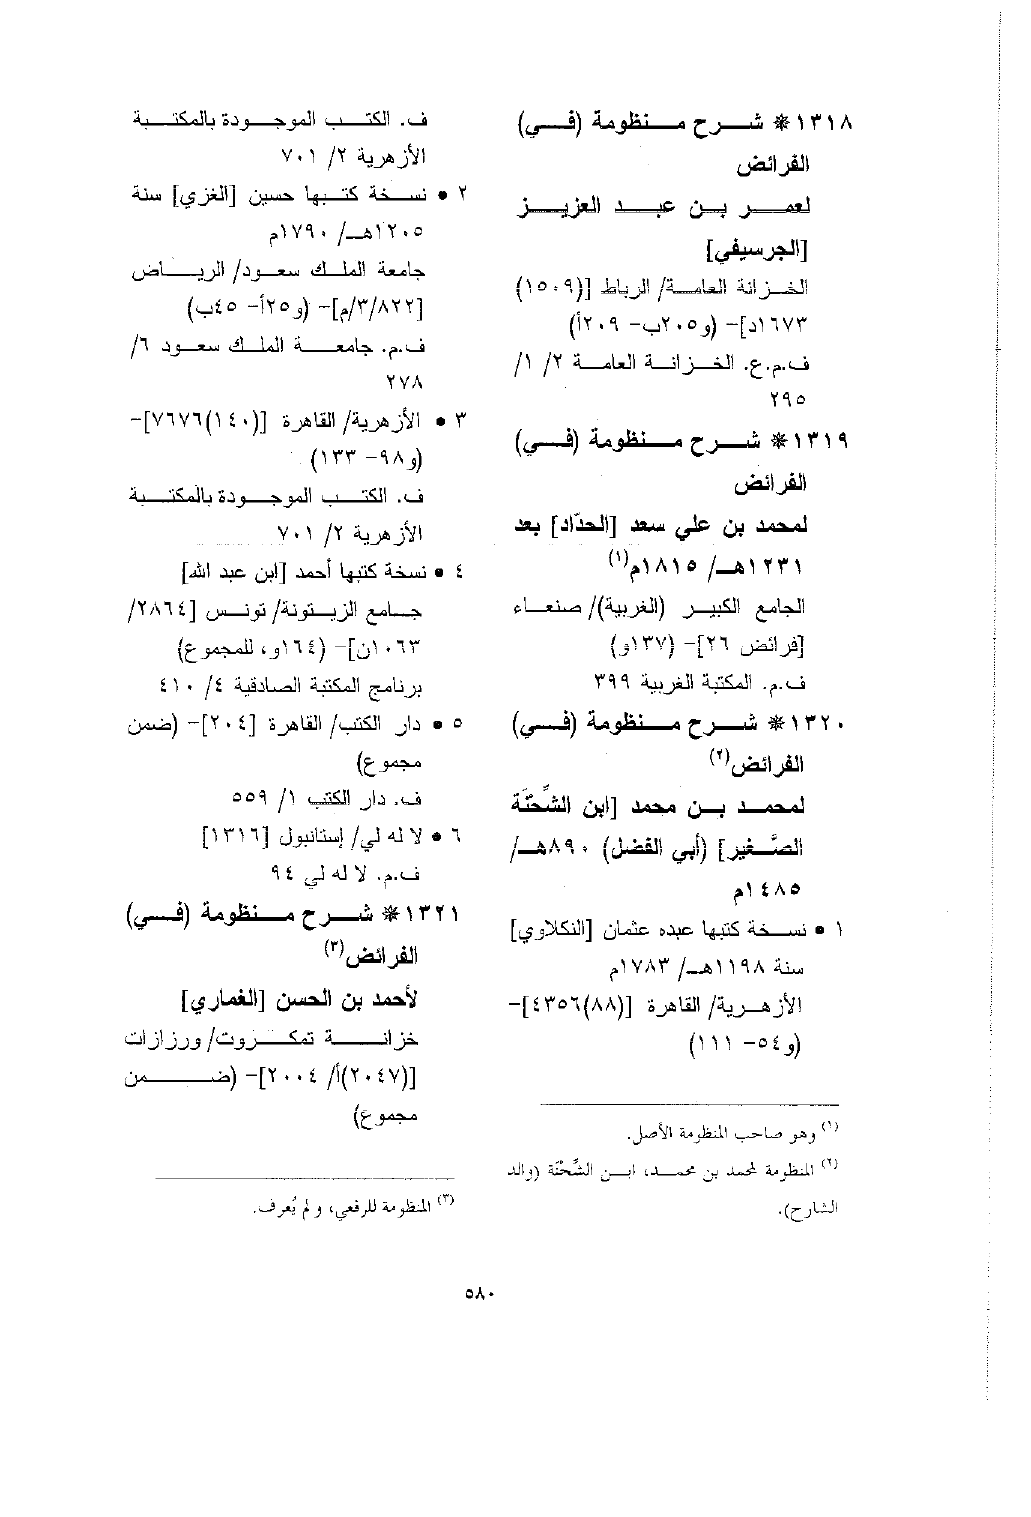 ١٣١٨ * شرح منظومة (في)
الفرائض
لعمر بن عبد العزيز
[الجرسيفي]
الخزانة العامة/ الرباط [(١٥٠٩)
١٦٧٣د]- (و٢٠٥ب- ٢٠٩أ)
ف.م.ع. الخزانة العامة ٢/ ١/
٢٩٥
١٣١٩ * شرح منظومة (في)
الفرائض
لمحمد بن علي سعد [الحدّاد] بعد
١٢٣١هـ/ ١٨١٥م(١)
الجامع الكبير (الغربية)/ صنعاء
[فرائض ٢٦]- (١٣٧و)
ف.م. المكتبة الغربية ٣٩٩
١٣٢٠ * شرح منظومة (في)
الفرائض(٢)
لمحمد بن محمد [ابن الشِّحْنَة
الصَّغير] (أبي الفضل) ٨٩٠هـ/
١٤٨٥م
١ • نسخة كتبها عبده عثمان [النكلاوي]
سنة ١١٩٨هـ/ ١٧٨٣م
الأزهرية/ القاهرة [(٨٨)٤٣٥٦]-
(و٥٤- ١١١)
(١) وهو صاحب المنظومة الأصل.
(٢) المنظومة لمحمد بن محمد، ابن الشِّحْنَة (والد
الشارح).
ف. الكتب الموجودة بالمكتبة
الأزهرية ٢/ ٧٠١
٢ • نسخة كتبها حسين [الغزي] سنة
١٢٠٥هـ/ ١٧٩٠م
جامعة الملك سعود/ الرياض
[٣/٨٢٢/م]- (و٢٥أ- ٤٥ب)
ف.م. جامعة الملك سعود ٦/
٢٧٨
٣ • الأزهرية/ القاهرة [(١٤٠)٧٦٧٦]-
(و٩٨- ١٣٣)
ف. الكتب الموجودة بالمكتبة
الأزهرية ٢/ ٧٠١
٤ • نسخة كتبها أحمد [ابن عبد الله]
جامع الزيتونة/ تونس [٢٨٦٤/
١٠٦٣ن]- (١٦٤و، للمجموع)
برنامج المكتبة الصادقية ٤/ ٤١٠
٥ • دار الكتب/ القاهرة [٢٠٤]- (ضمن
مجموع)
ف. دار الكتب ١/ ٥٥٩
٦ • لا له لي/ إستانبول [١٣١٦]
ف.م. لا له لي ٩٤
١٣٢١ * شرح منظومة (في)
الفرائض(٣)
لأحمد بن الحسن [الغماري]
خزانة تمكروت/ ورزازات
[(٢٠٤٧)أ/ ٢٠٠٤]- (ضمن
مجموع)
(٣) المنظومة للرقعي، ولم يُعرف.
٥٨٠